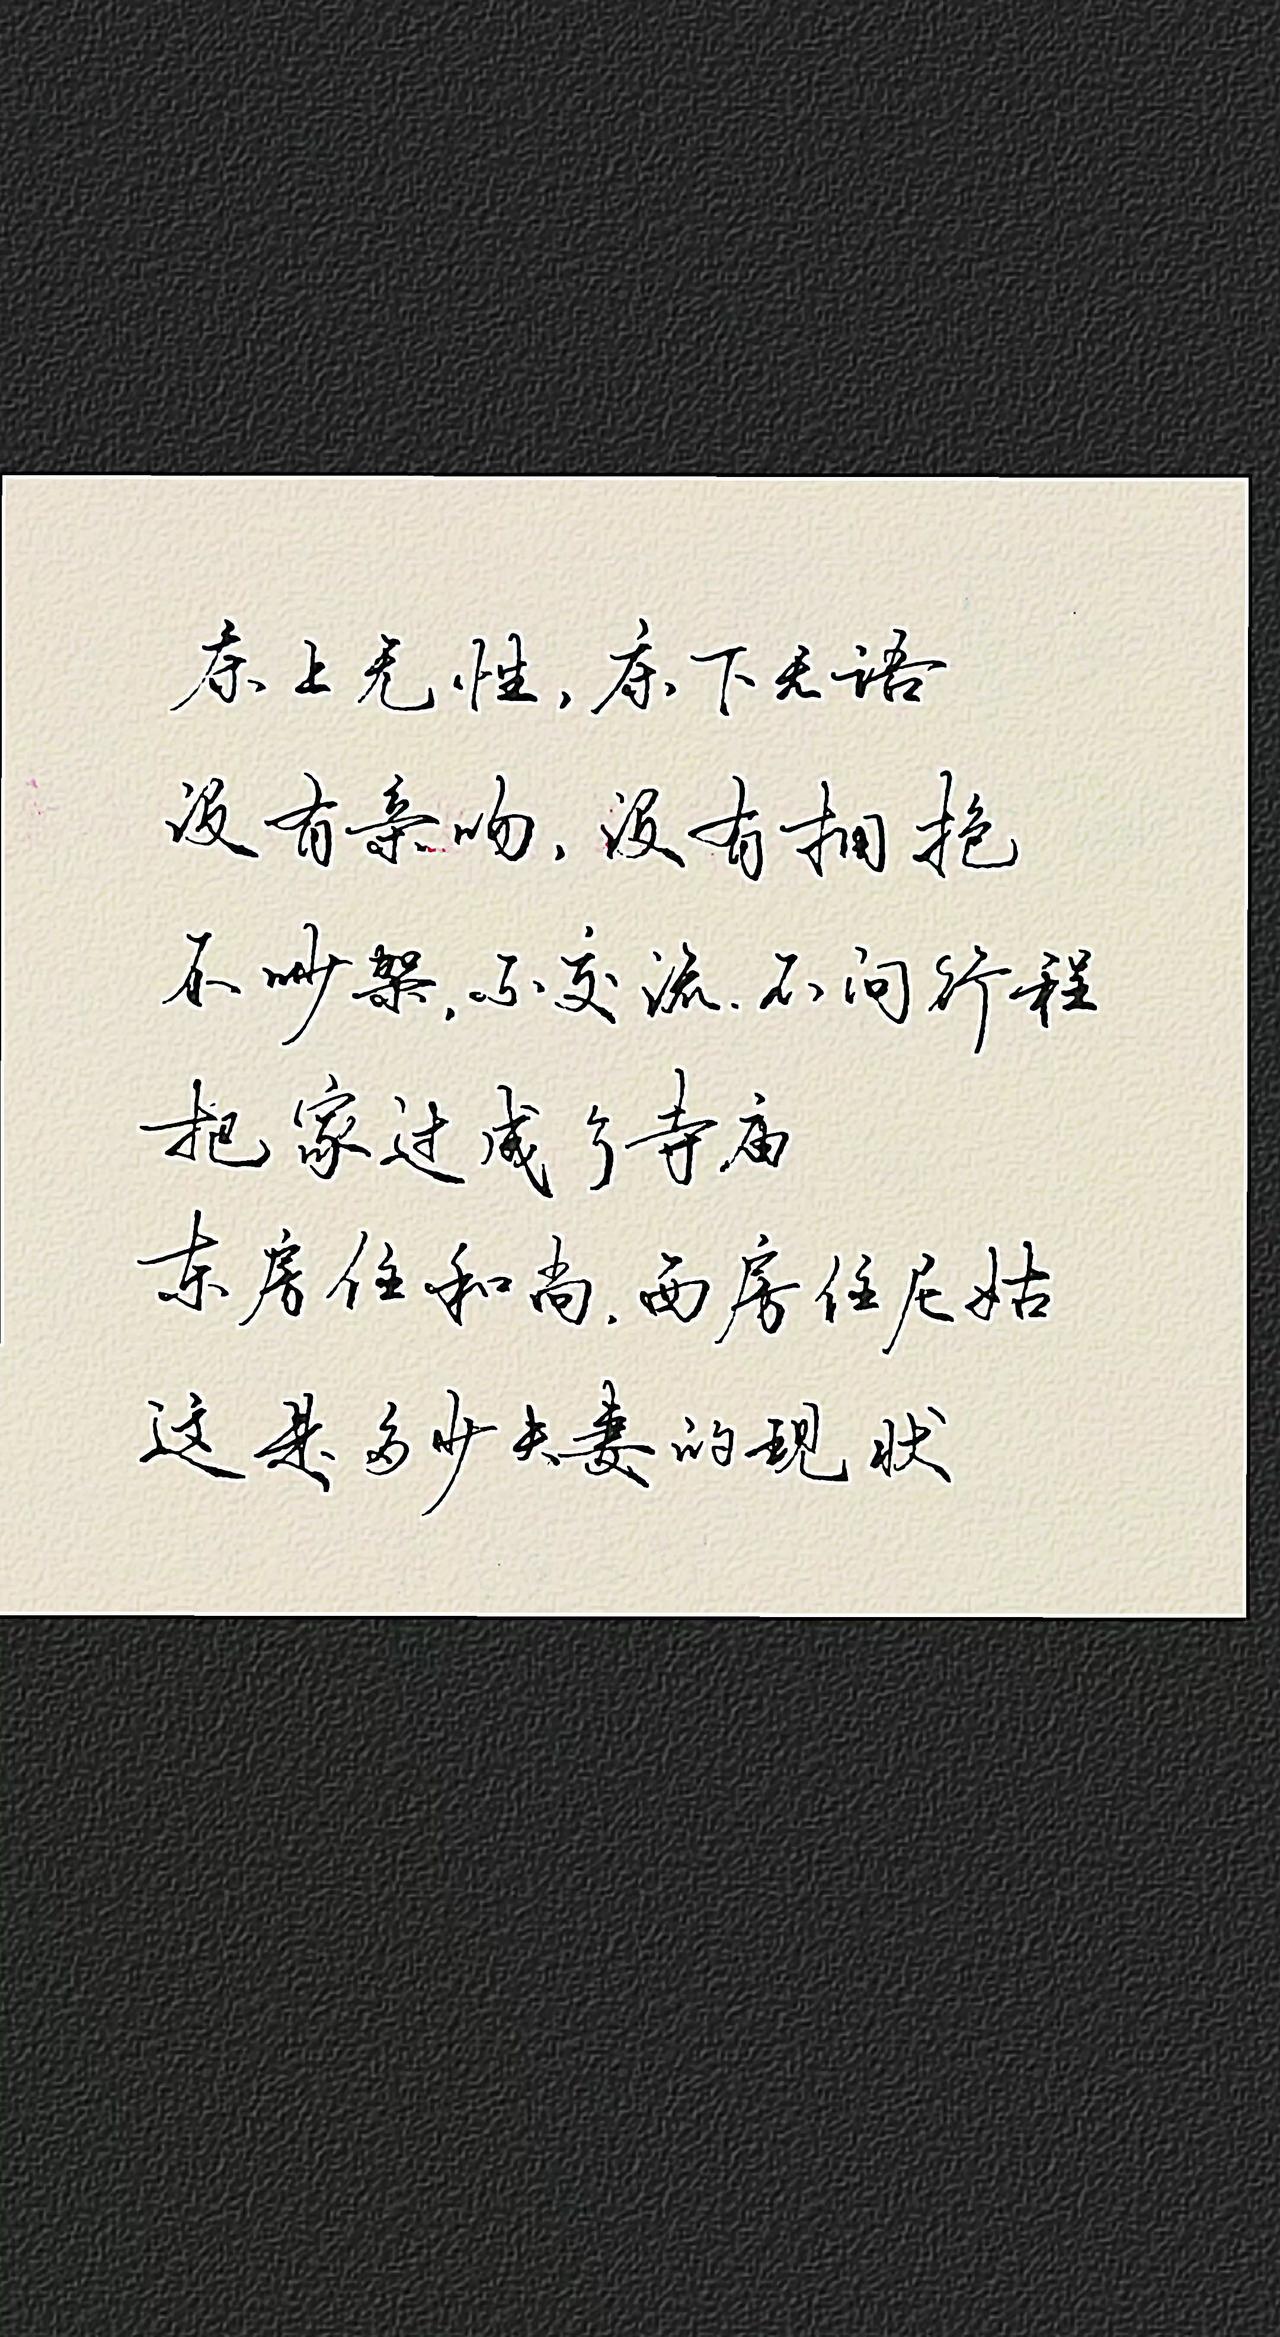 床上无性,床下无语
没有亲吻,没有拥抱
不吵架,不交流.不问行程
把家过成了寺庙
东房住和尚.西房住尼姑
这是多少夫妻的现状